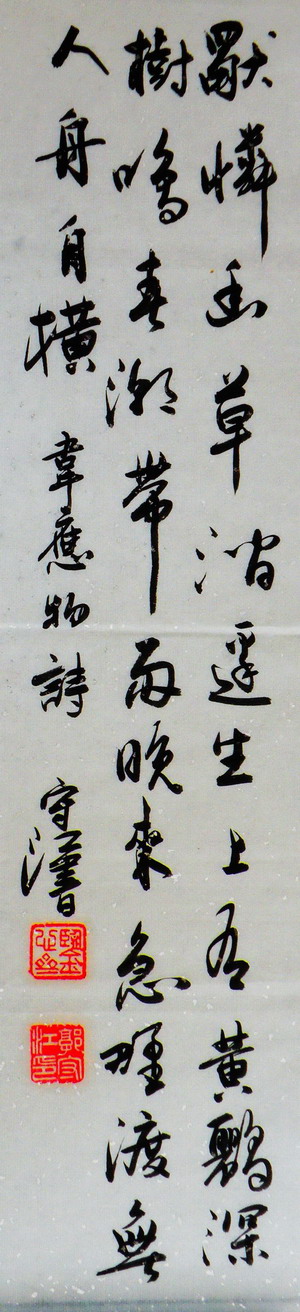 獨憐幽草澗邊生上有黃鸝深
樹鳴春潮帶雨晚來急野渡無
人舟自橫 韋應物詩 守江書
郭守江印